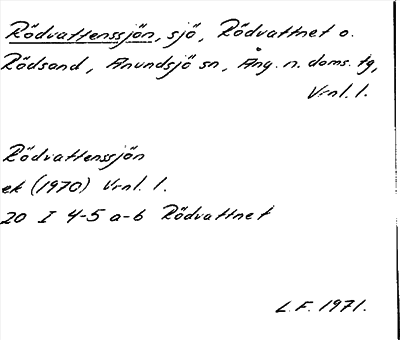 Rödvattenssjön, sjö, Rödvattnet o.
Rödsand, Anundsjö sn, Ång. n. doms. tg,
Vrnl. l.
Rödvattenssjön
ek (1970) Vrnl. l.
20 I 4-5 a-b Rödvattnet
L.F. 1971.